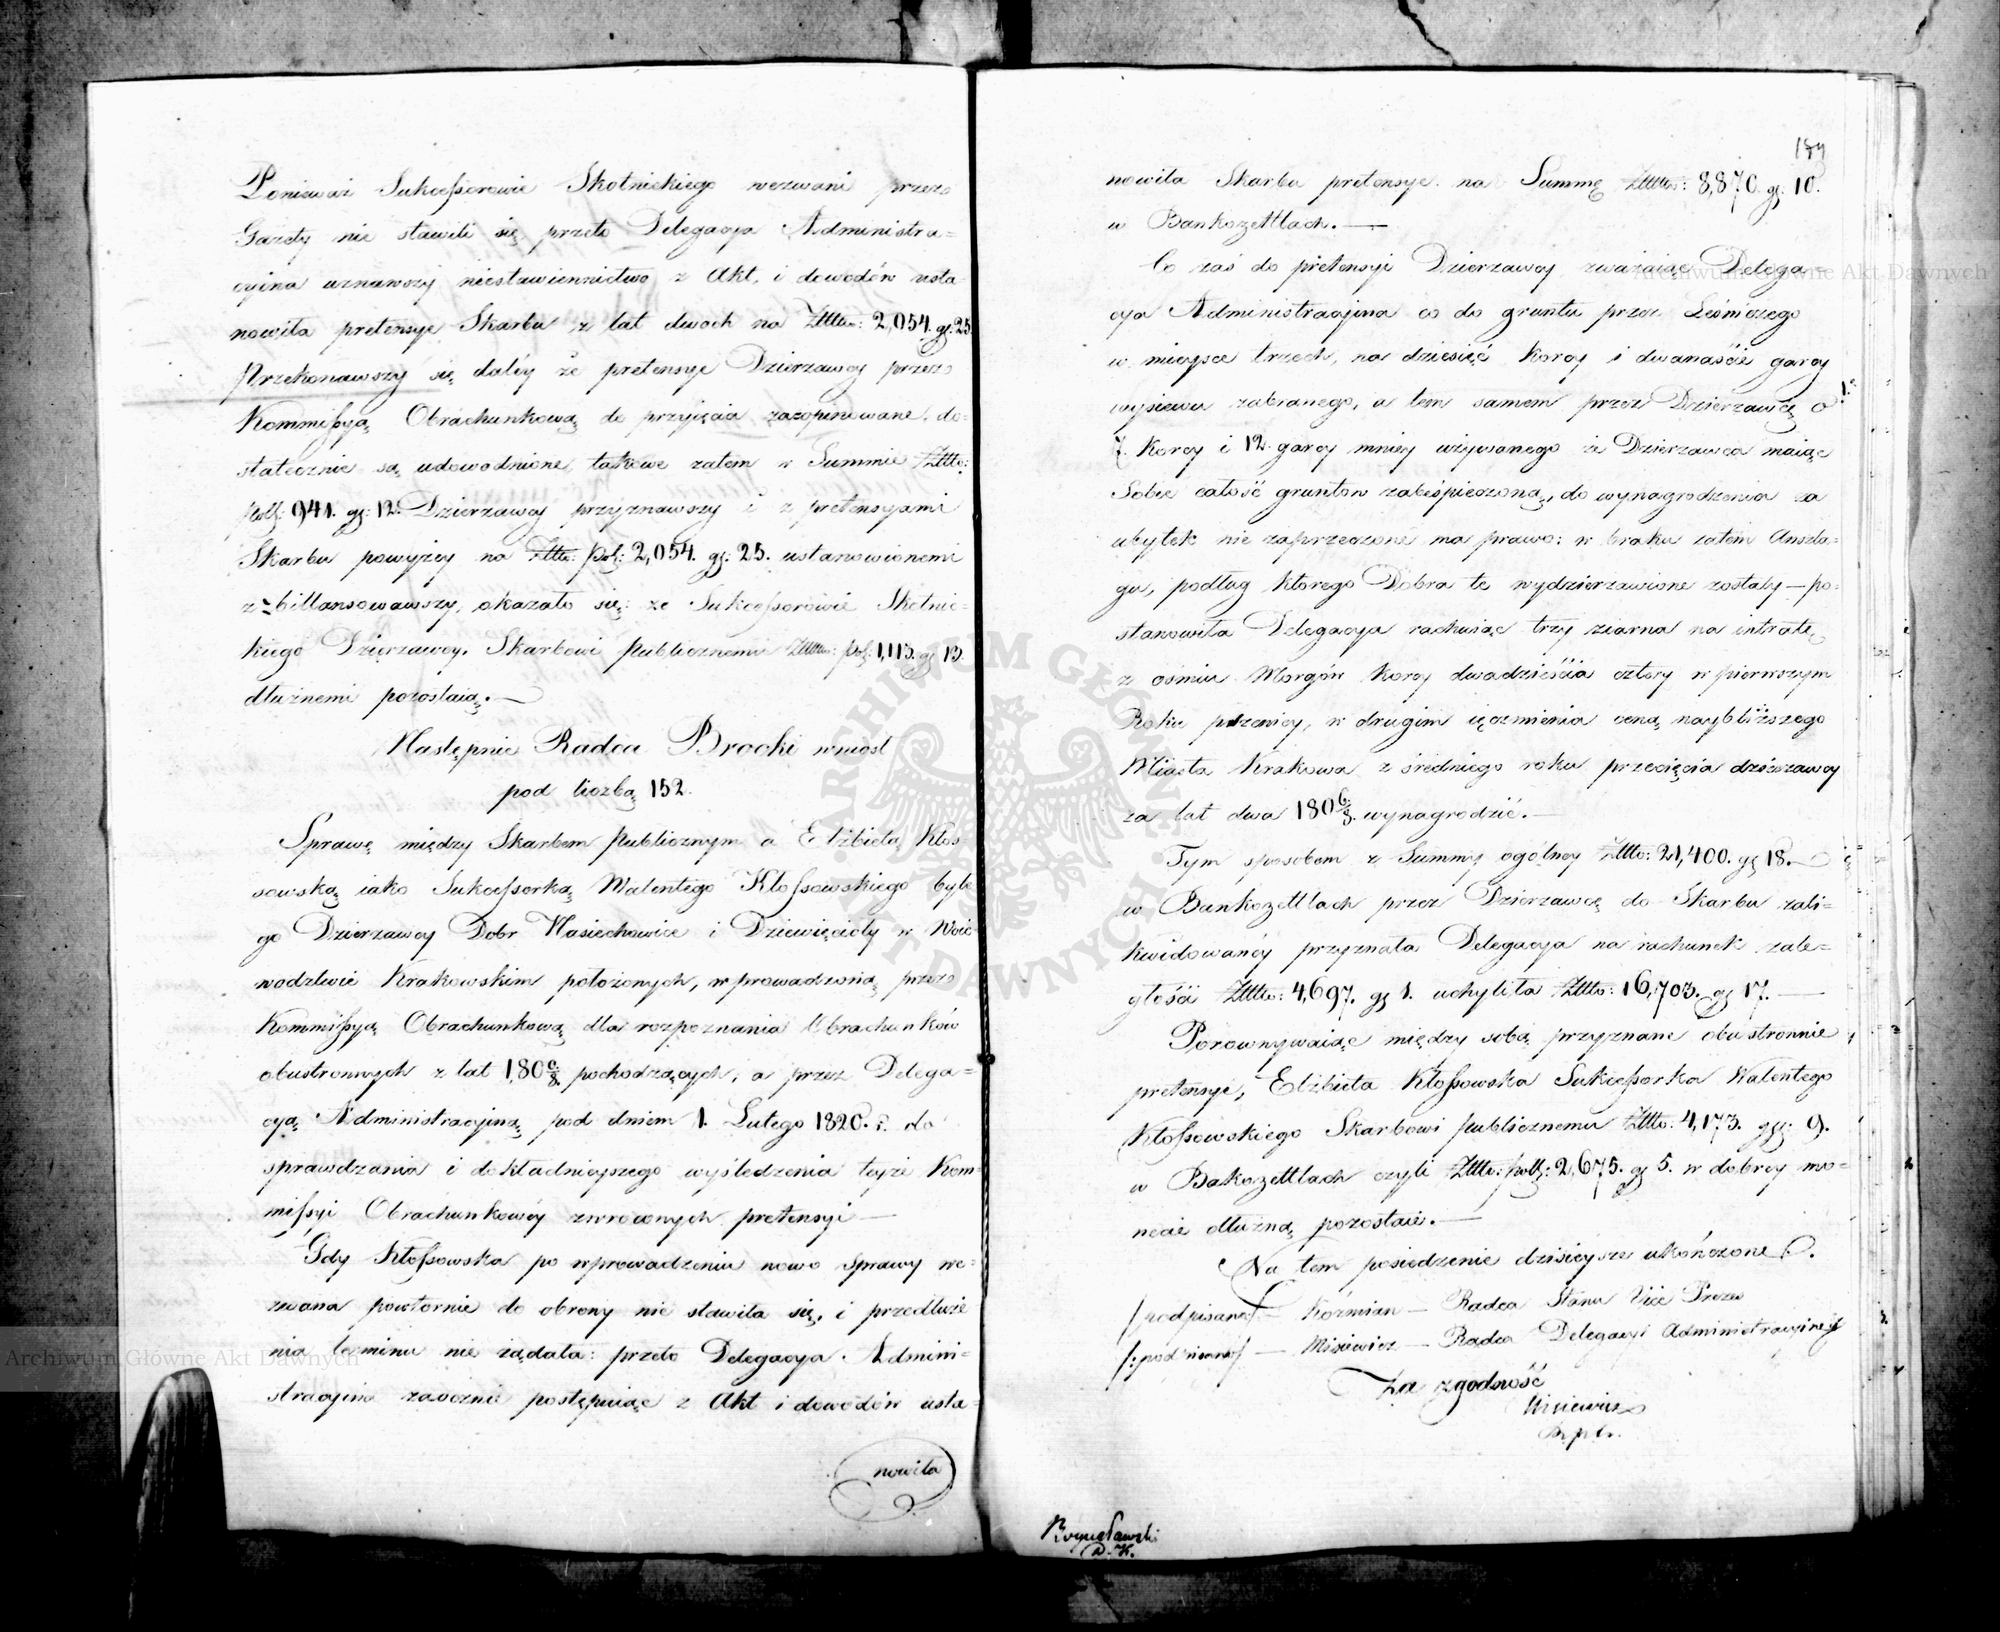 Ponieważ Sukcessorowie Skotnickiego wezwani przez
Gazety nie stawili się, przeto Delegacya Administra=
cyina uznawszy niestawiennictwo z Akt, i dowodów usta
nowiła pretensye Skarbu z lat dwoch na Złłto: 2,054. gr: 25.
Przekonawszy się daléy że pretensye Dzierzawcy przez
Kommissyą Obrachunkową do przyięcia zaopiniowane, do=
statecznie są udowodnione, takowe zatem w Summie Złłto:
Poll: 941. gr: 12. Dzierzawcy przyznawszy i z pretensyami
Skarbu powyżey na Złłto: Pol: 2,054. gr: 25. ustanowionemi
z=billansowawszy, okazało się: że Sukcessorowie Skotnic=
kiego Dzierzawcy, Skarbowi Publicznemu Złłto: Pol: 1,113. gr 13.
dłużnemi pozostaią.—
Następnie Radca Brocki wniosł
pod liczbą 152.
Sprawę między Skarbem Publicznym a Elżbietą Kłos
sowską iako Sukcessorką Walentego Kłossowskiego byłe
go Dzierzawcy Dobr Wasiechowice i Dziewięcioły w Woie
wodztwie Krakowskim położonych, wprowadzoną przez
Kommissyą Obrachunkową dla rozpoznania Obrachunków
obustronnych z lat 180 6/8 pochodzących, a przez Delega=
cyą Administracyiną pod dniem 1. Lutego 1820. r. do
sprawdzania i dokładnieyszego wyśledzenia teyże Kom=
missyi Obrachunkowéy zwroconych pretensyi —
Gdy Kłossowska po wprowadzeniu nowo sprawy we=
zwana powtornie do obrony nie stawiła się, i przedłuże
nia terminu nie żądała: przeto Delegacya Admini=
stracyina zaocznie postępuiąc z Akt i dowodów usta=
nowiła
189
nowiła Skarbu pretensye na Summę Złłto: 8,870. gr: 10.
w Bankozettlach. —
Co zaś do pretensyi Dzierzawcy zważaiąc Delega=
cya Administracyina co do gruntu przez Leśniczego
w mieysce trzech, na dziesięć korcy i dwanaście garcy
wysiewu zabranego, a tem samem przez Dzierzawcę o
7. korcy i 12. garcy mniey używanego że Dzierzawca maiąc
Sobie całość gruntow zabespieczoną, do wynagrodzenia za
ubytek nie zaprzeczone ma prawo: w braku zatem Anszla=
gu, podług ktorego Dobra te wydzierzawione zostały — po=
stanowiła Delegacya rachuiąc trzy ziarna na intratę
z ośmiu Morgów korcy dwadzieścia cztery w pierwszym
Roku pszenicy, w drugim ięczmienia ceną naybliższego
Miasta Krakowa z średniego roku przecięcia dzierzawcy
za lat dwa 180 6/8. wynagrodzić. —
Tym sposobem z Summy ogolney Złłto: 21,400. gr 18. —
w Bankozettlach przez Dzierzawcę do Skarbu zali=
kwidowanéy przyznała Delegacya na rachunek zale=
głości Złłto: 4,697. gr 1. uchyliła Złłto: 16,703. gr 17. —
Porownywaiąc między sobą przyznane obustronnie
pretensye, Elżbieta Kłossowska Sukcessorka Walentego
Kłossowskiego Skarbowi Publicznemu Złłto: 4,173. gr: 9.
w Bakozettlach czyli Złłto: poll: 2,675. gr 5. w dobrey mo=
necie dłużną pozostaie. —
Na tem posiedzenie dzisieysze ukończone.
/podpisano/ — Koźmian — Radca Stanu Vice Prezes
/:podpisano/ — Misiewicz — Radca Delegacyi Administracyiney
Za zgodność
Misiewicz
Bogusławski
Archiwum Główne Akt Dawnych
Archiwum Główne Akt Dawnych
ARCHIWUM GŁÓWNE AKT DAWNYCH